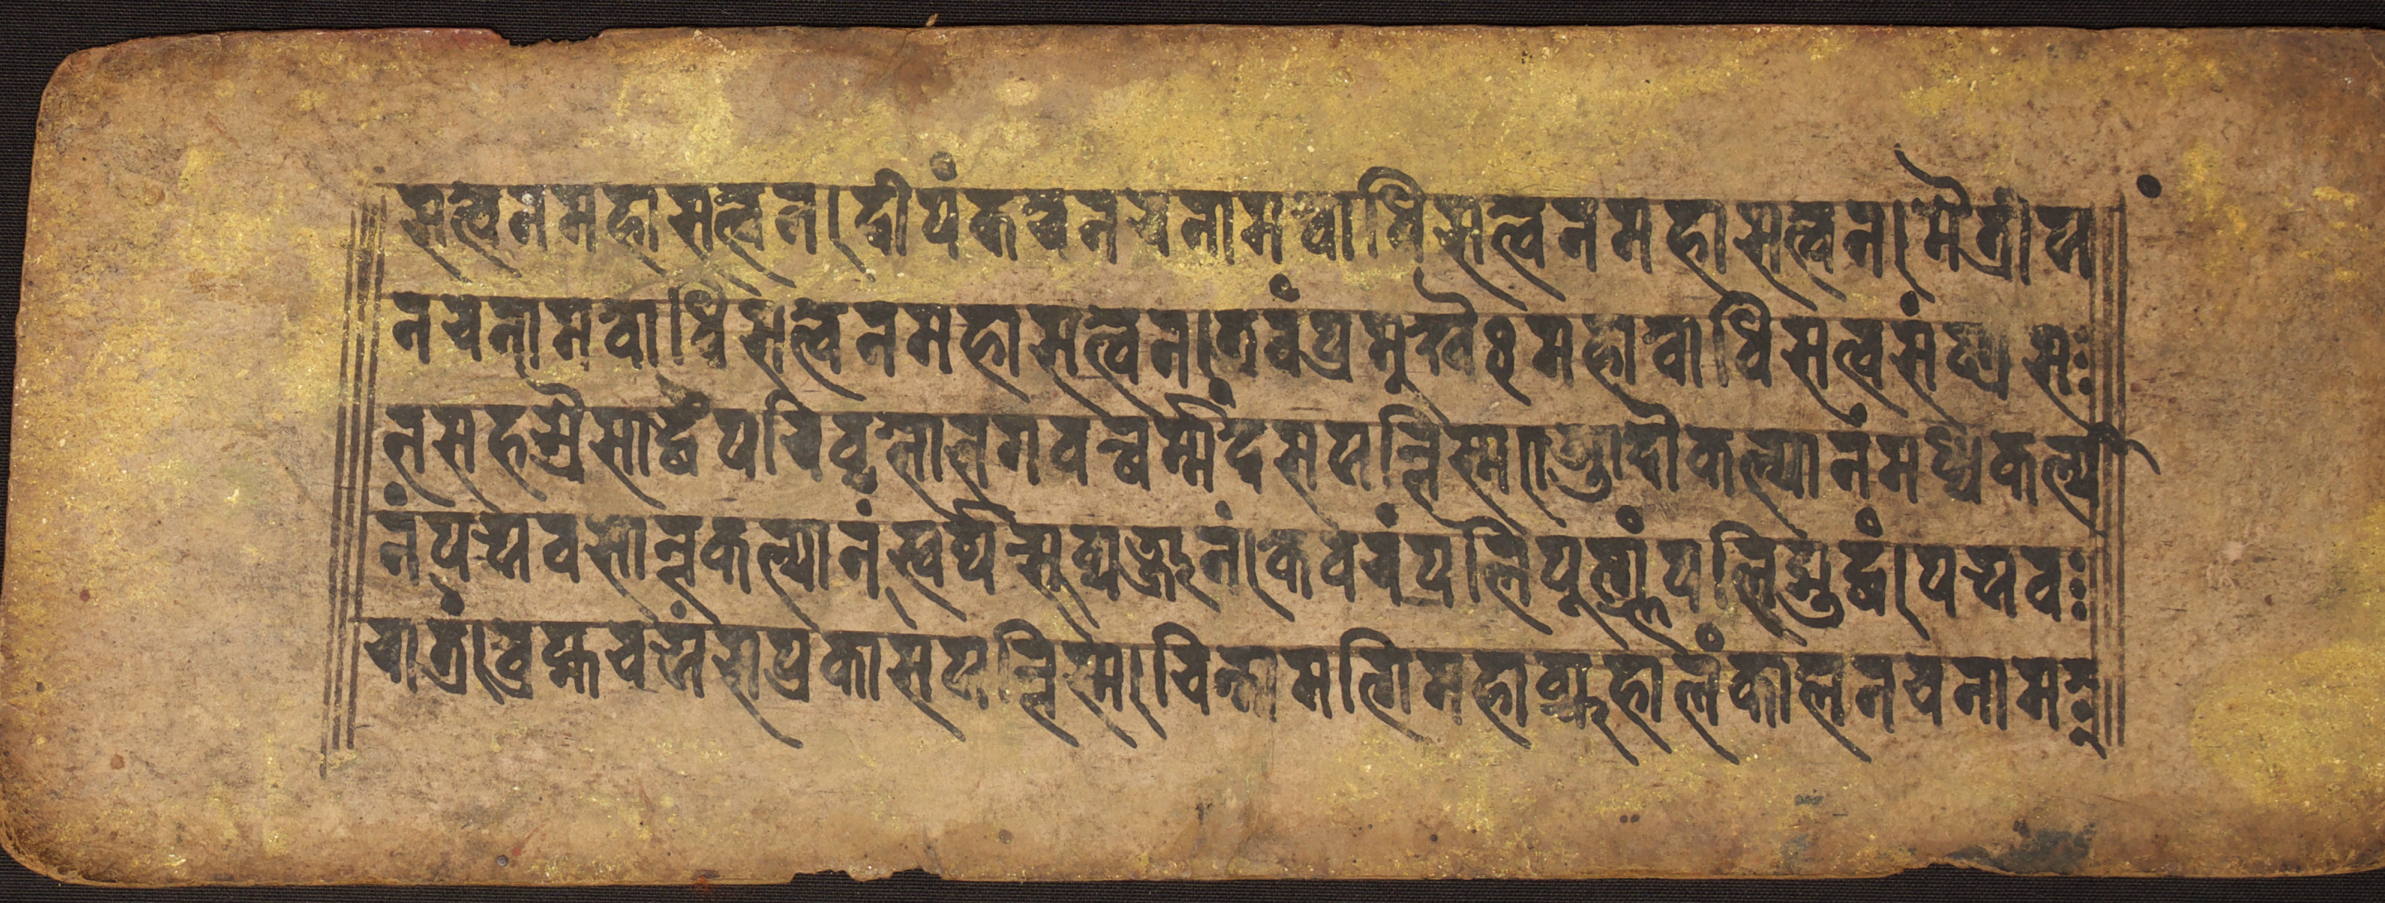 सत्वेन महासत्वेन। दीपंकरेन च नाम बोधिसत्वेन महासत्वेन। मैत्रीय
न च नाम बोधिसत्वेन महासत्वेन। एवं प्रमुखैः महाबोधिसत्वसंघा स
त सहश्रै सार्द्धं परिवृत्ता भगवन्धर्म्मं देसयन्ति स्म। आदौ कल्यानं मध्य कल्या
नं पर्यवसान कल्यानं स्वर्थं सुव्यञ्जनं। केवरं प्रलिपूर्ण्णं पलिशुद्धं। पर्यव
दातं। ब्रह्मचर्यं संप्रकासयन्ति स्म। चिन्तामनि महाव्यूहालंकालेन च नाम